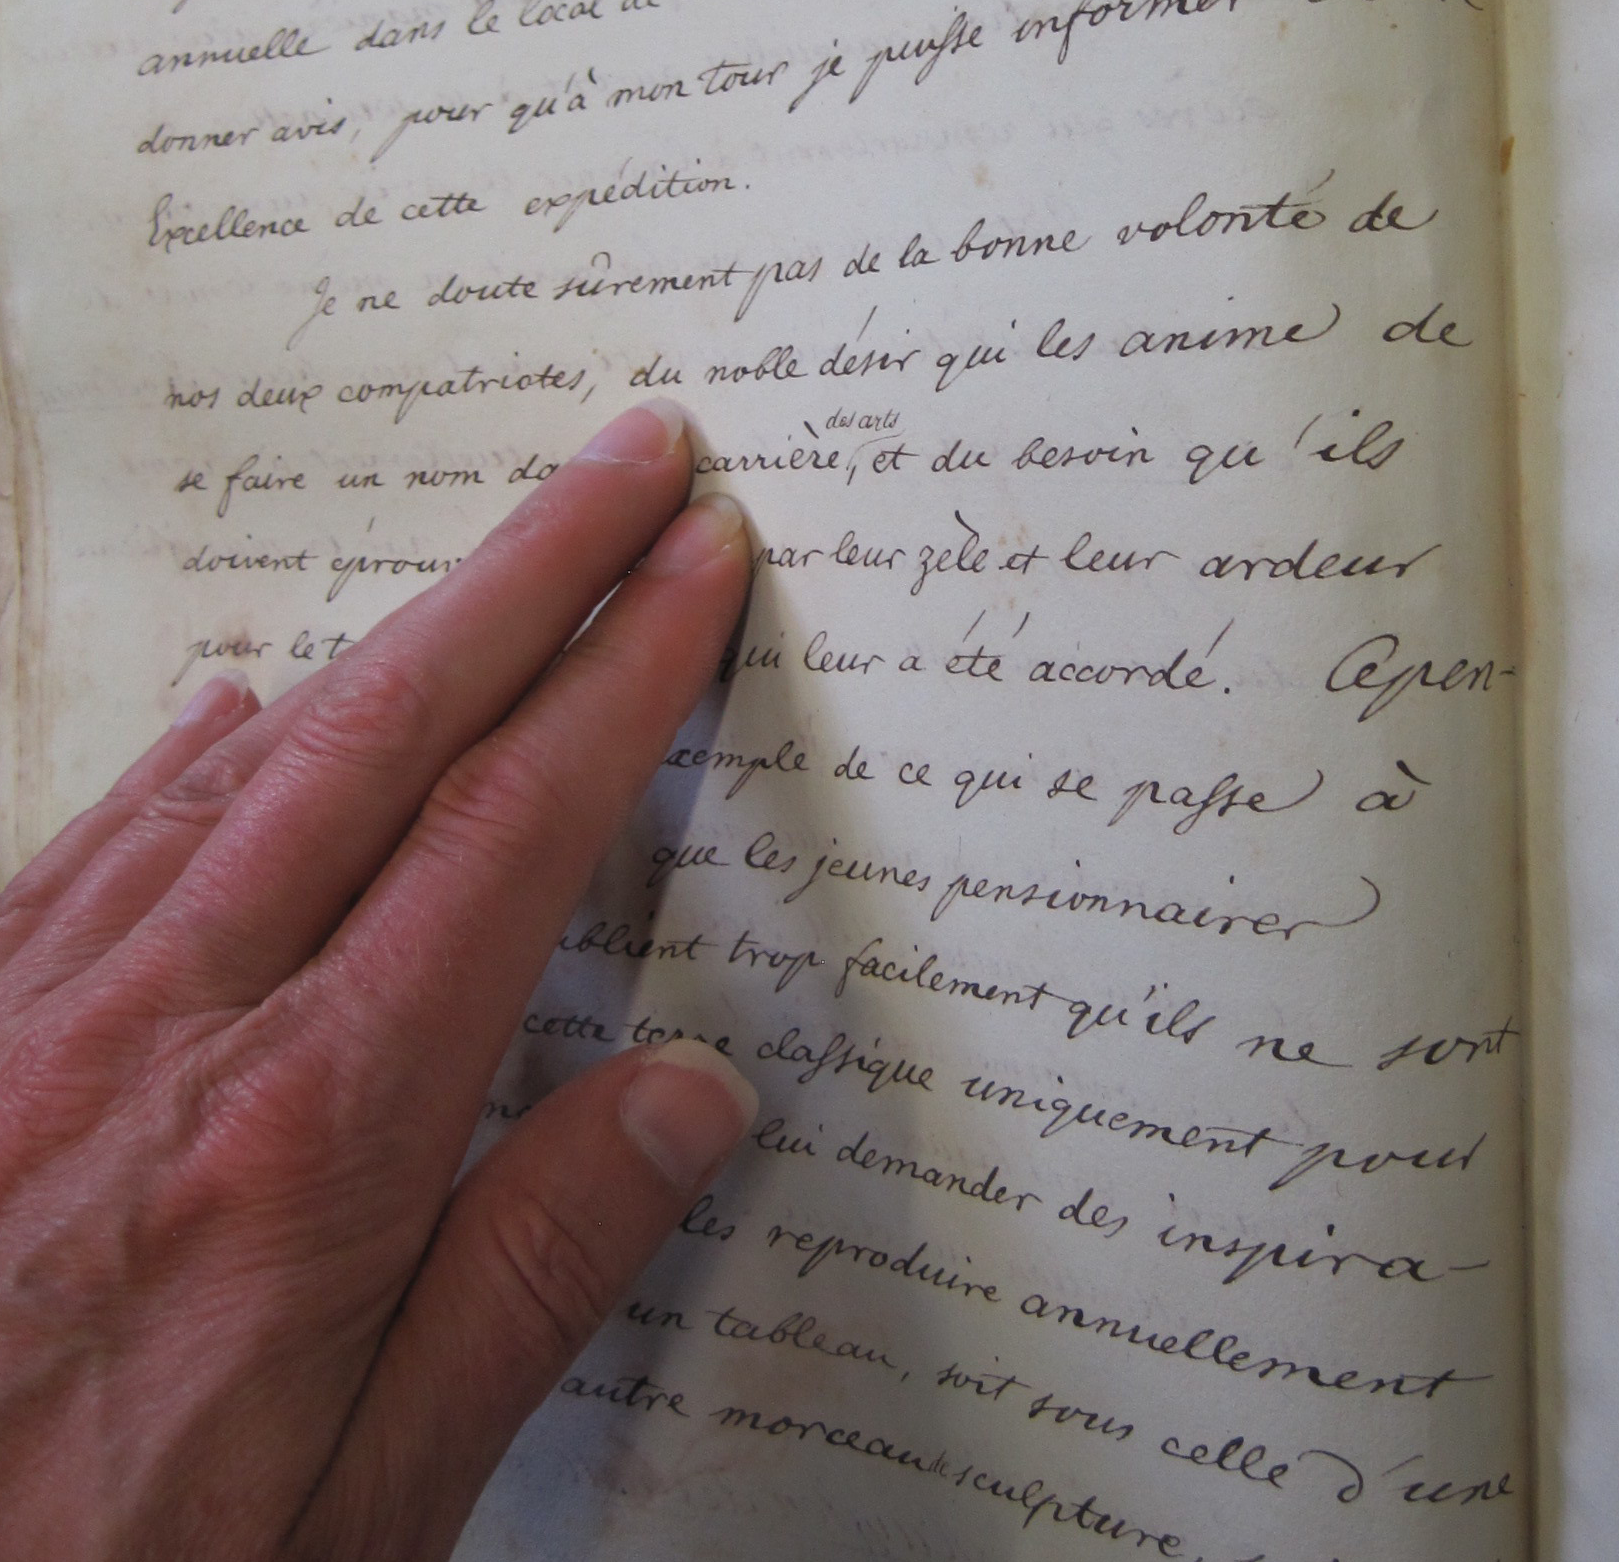 annuelle dans le local de
donner avis, pour qu'à mon tour je puisse informer
Excellence de cette expédition.
Je ne doute sûrement pas de la bonne volonté de
nos deux compatriotes, du noble désir qui les anime de
des arts
se faire un nom da carrière, et du besoin qu'ils
doivent éprouv par leur zèle et leur ardeur
pour le t qui leur a été accordé. Cepen-
xemple de ce qui se passe à
que les jeunes pensionnaires
ublient trop facilement qu'ils ne sont
cette terre classique uniquement pour
lui demander des inspira-
les reproduire annuellement
un tableau, soit sous celle d'une
autre morceau de sculpture,